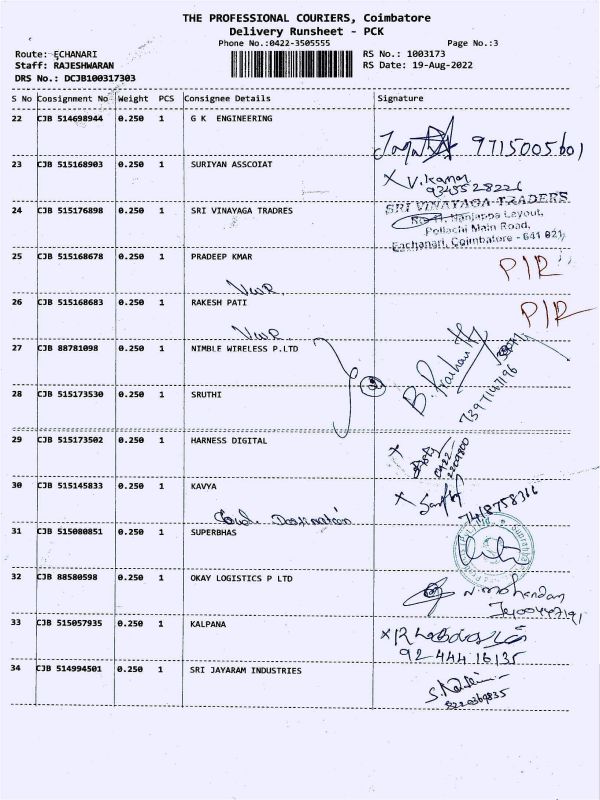 THE PROFESSIONAL COURIERS, Coimbatore
Delivery Runsheet - PCK
Phone No.:0422-3505555 Page No.:3
Route: ECHANARI RS No.: 1003173
Staff: RAJESHWARAN RS Date: 19-Aug-2022
DRS No.: DCJB100317303
S No Consignment No Weight PCS Consignee Details Signature
22 CJB 514698944 0.250 1 G K ENGINEERING
9715005601
23 CJB 515168903 0.250 1 SURIYAN ASSCOIAT
X V. Kumar
9345528226
24 CJB 515176898 0.250 1 SRI VINAYAGA TRADRES
SRI VINAYAGA TRADERS
No 11, Nanjappa Layout,
Pollachi Main Road,
Eachanari, Coimbatore - 641 021
25 CJB 515168678 0.250 1 PRADEEP KMAR
PIR
26 CJB 515168683 0.250 1 RAKESH PATI
PIR
27 CJB 88781098 0.250 1 NIMBLE WIRELESS P.LTD
2
B. Prashanth
7397147196
28 CJB 515173530 0.250 1 SRUTHI
29 CJB 515173502 0.250 1 HARNESS DIGITAL
X
30 CJB 515145833 0.250 1 KAVYA
X
7418758366
31 CJB 515080851 0.250 1 SUPERBHAS
32 CJB 88580598 0.250 1 OKAY LOGISTICS P LTD
N. Mohandam
33 CJB 515057935 0.250 1 KALPANA
X
92 444 16135
34 CJB 514994501 0.250 1 SRI JAYARAM INDUSTRIES
8220369835